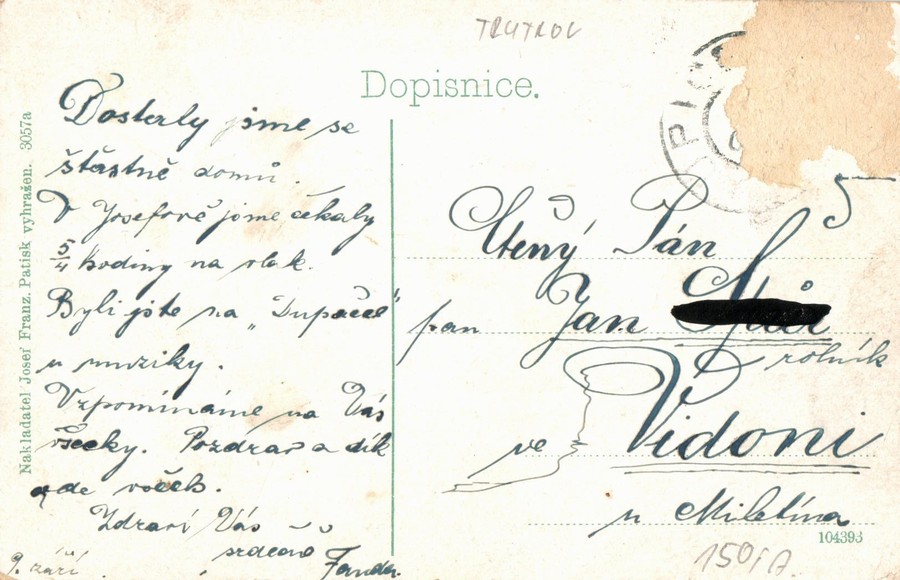 TRUTNOV
Dopisnice.
Dosterly jsme se
šťastně domů.
V Josefově jsme čekaly
5/4 hodiny na vlak.
Byli jste na "Dupačce"
u muziky.
Vzpomínáme na Vás
všecky. Pozdrav a dík
ode všech.
Zdraví Vás
srdečně Fanda.
9. září
Nakladatel Josef Franz. Patisk vyhražen. 3057a
Ctěný Pán
pan Jan
rolník
ve Vidoni
u Miletína
104393